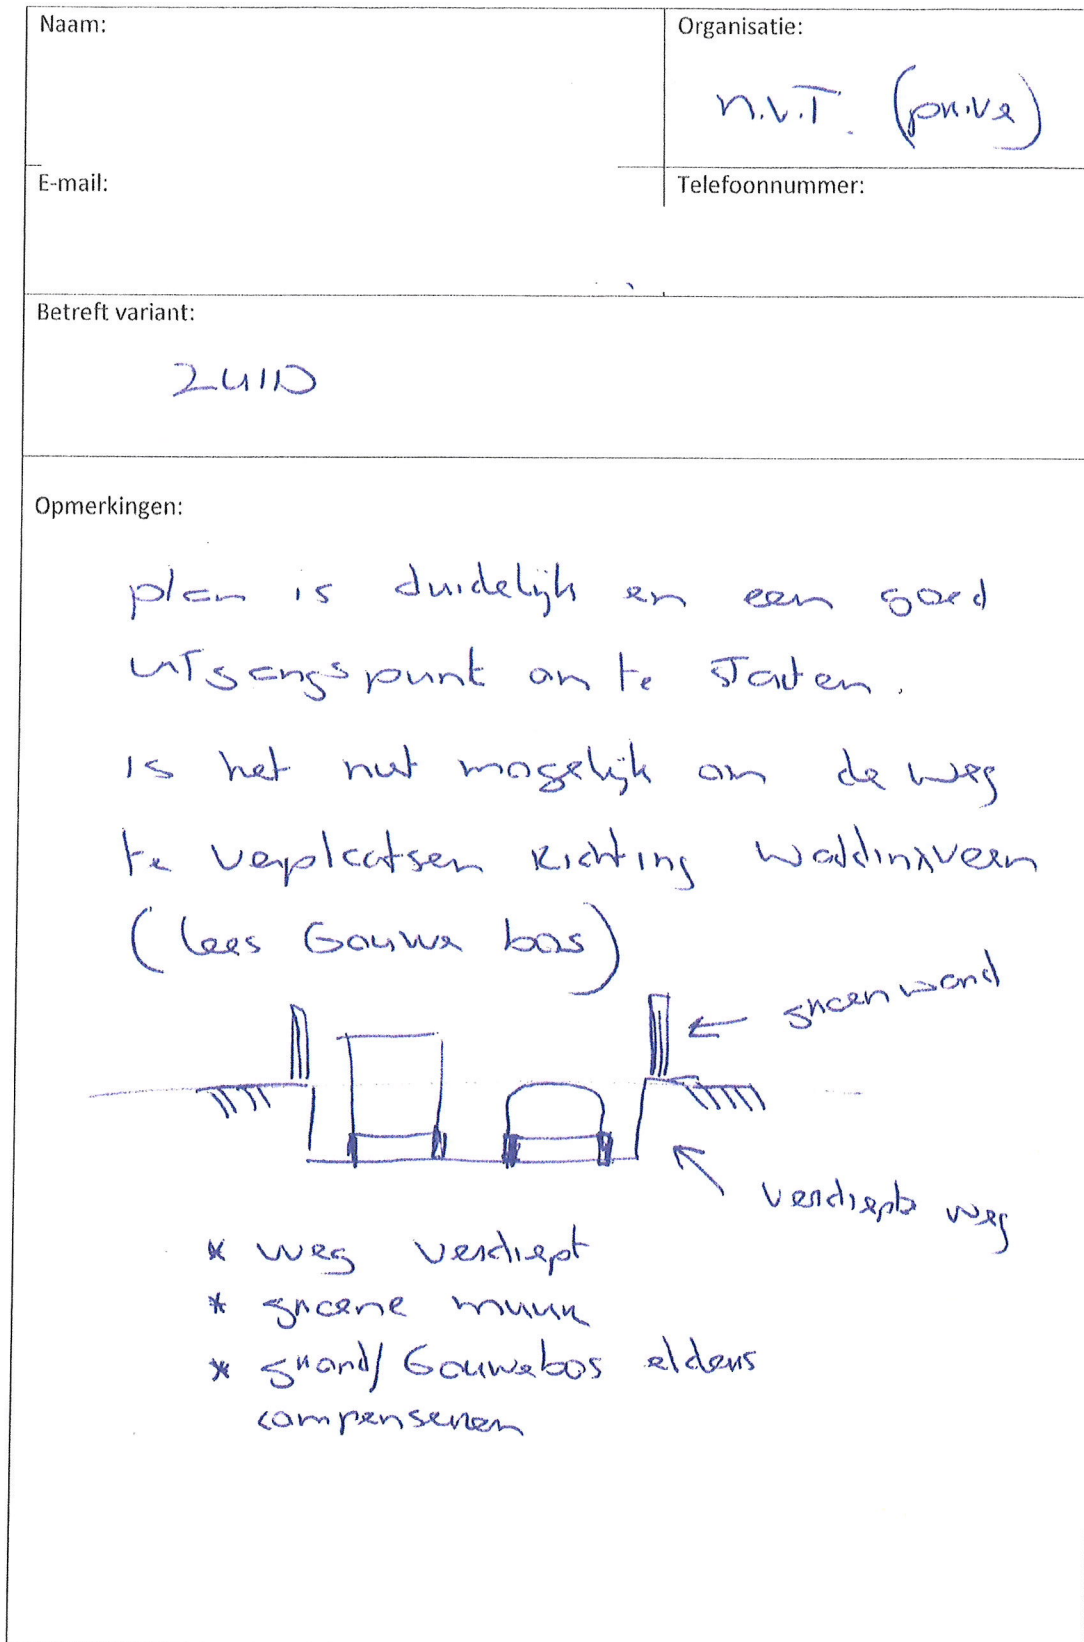 Naam:
Organisatie:
n.v.T. (privé)
E-mail:
Telefoonnummer:
Betreft variant:
ZUID
Opmerkingen:
plan is duidelijk en een goed
uitgangspunt om te starten.
is het niet mogelijk om de weg
te verplaatsen richting Waddinxveen
(lees Gouwe bos)
groenwand
verdiepte weg
* weg verdiept
* groene muur
* grond/Gouwebos elders
compenseren